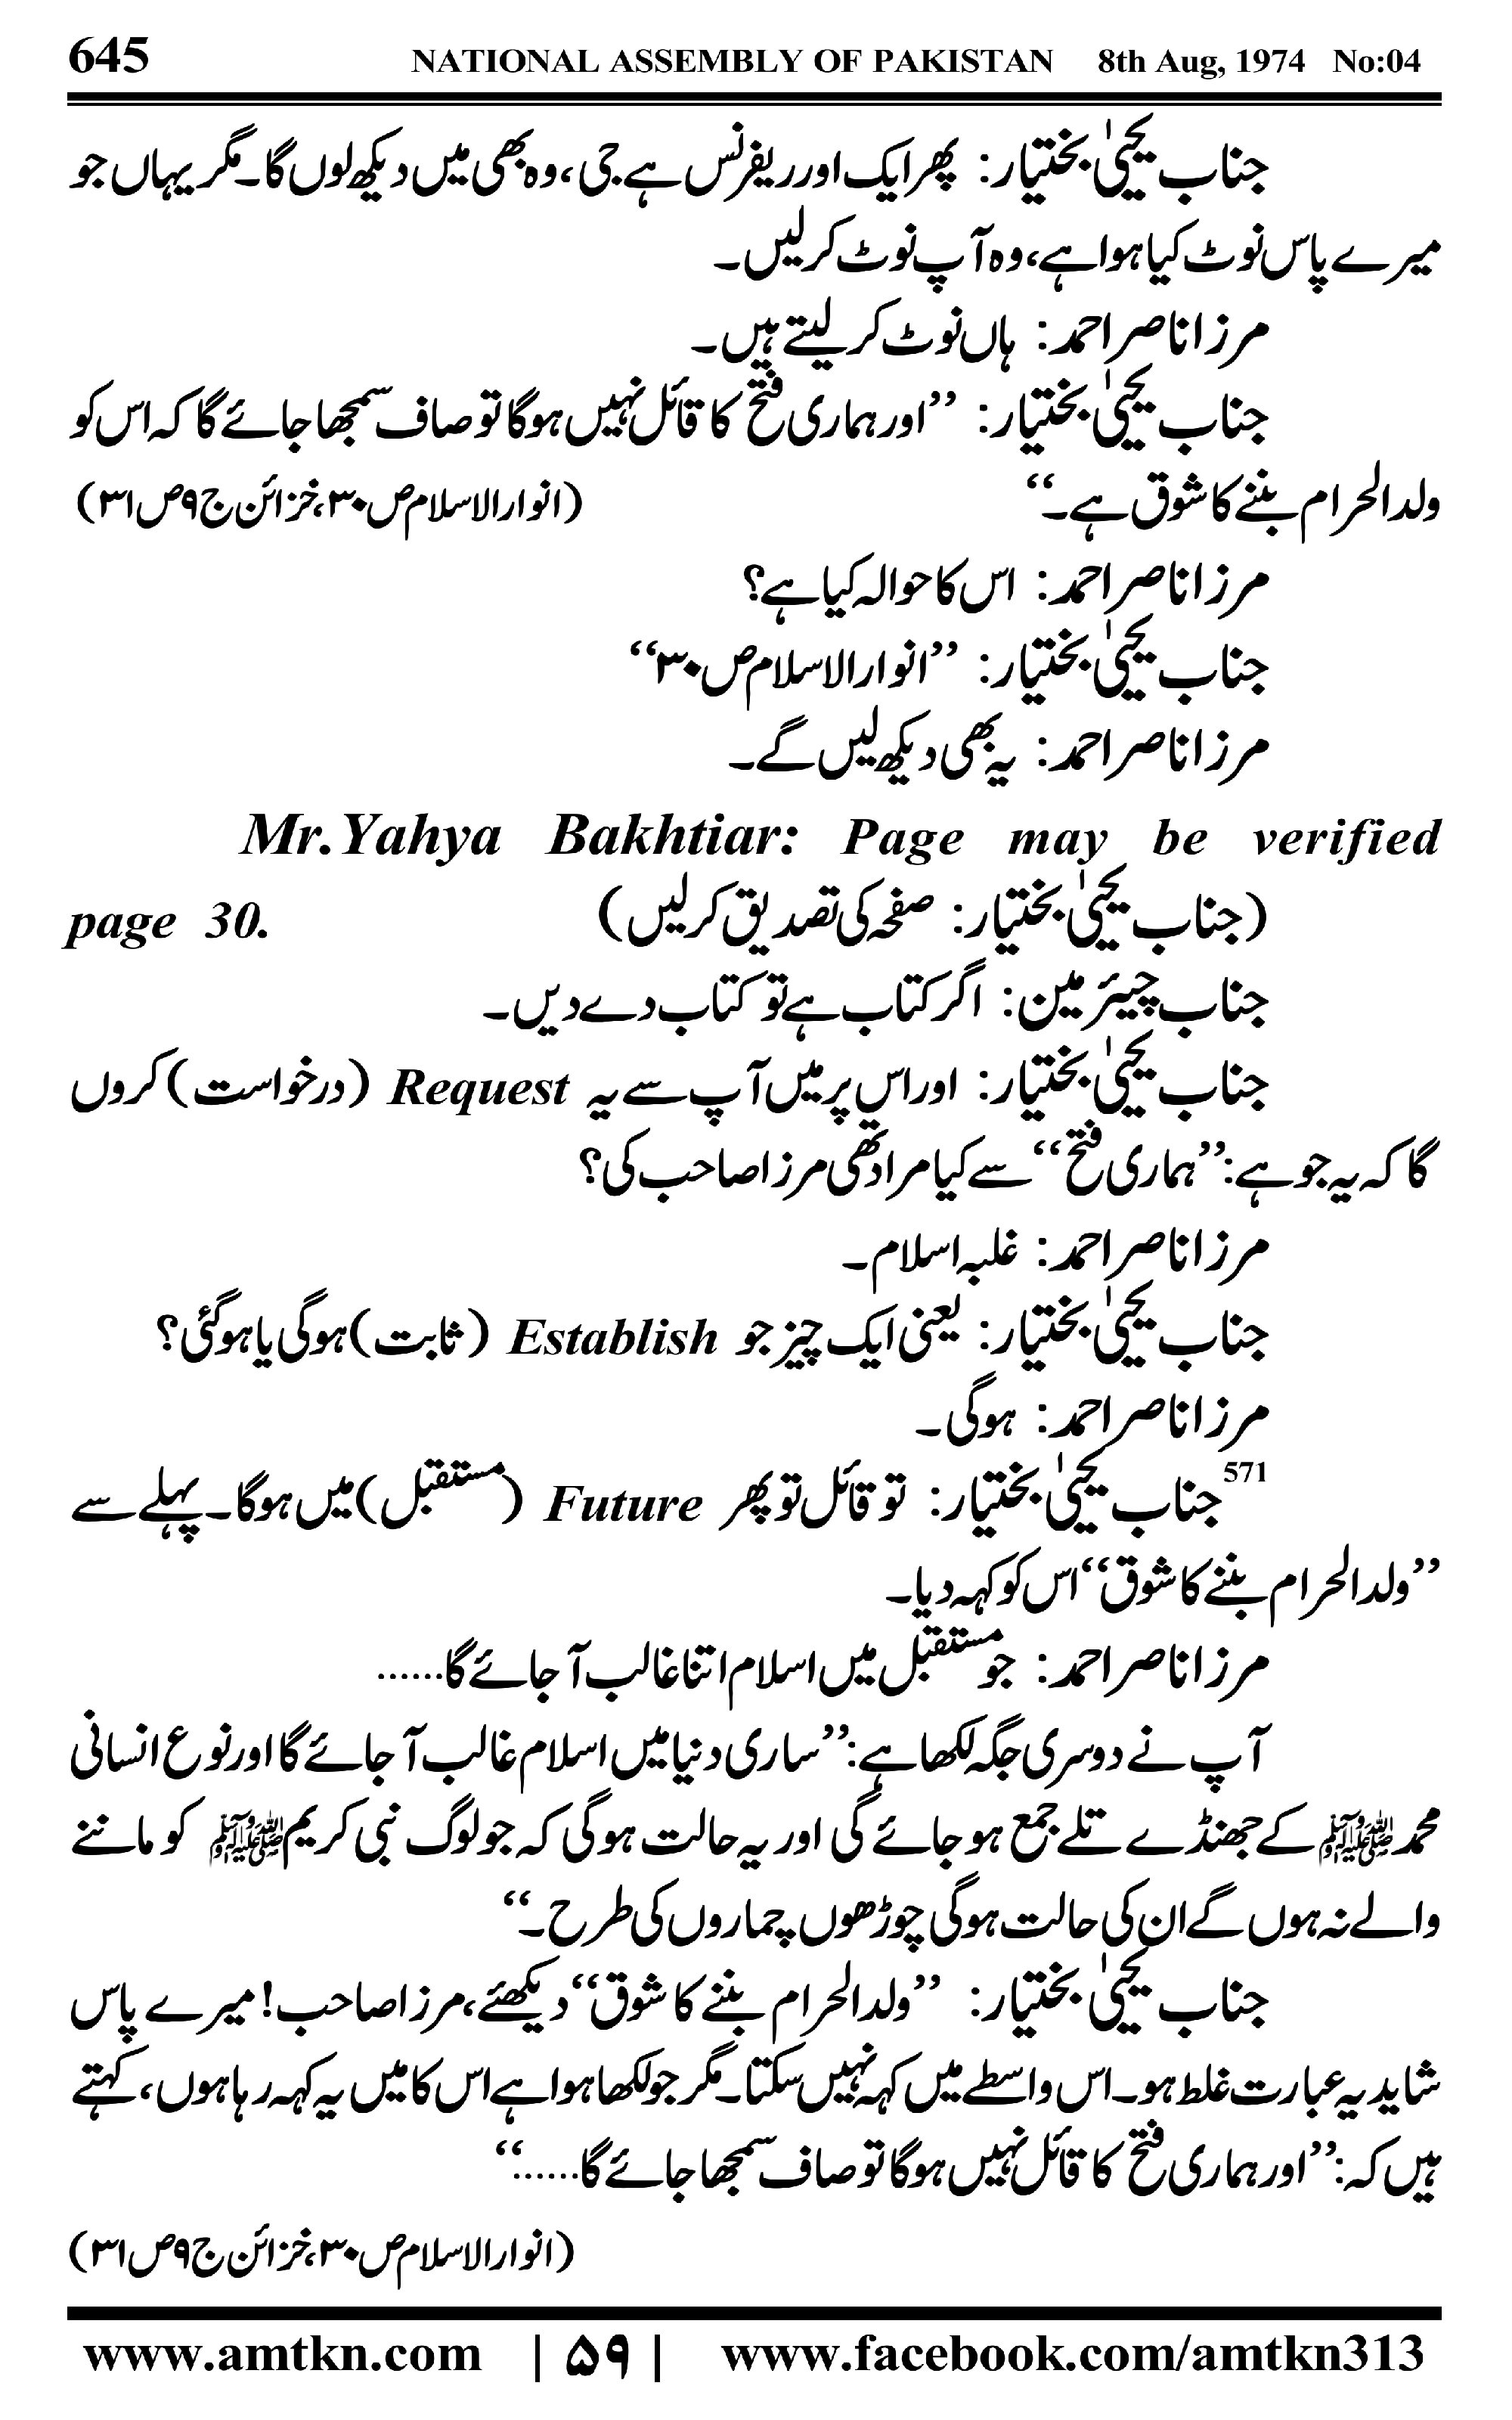 645 NATIONAL ASSEMBLY OF PAKISTAN 8th Aug, 1974 No:04
جناب یحییٰ بختیار: پھر ایک اور ریفرنس ہے جی، وہ بھی میں دیکھ لوں گا۔ مگر یہاں جو
میرے پاس نوٹ کیا ہوا ہے، وہ آپ نوٹ کرلیں۔
مرزا ناصر احمد: ہاں نوٹ کر لیتے ہیں۔
جناب یحییٰ بختیار: ’’اور ہماری فتح کا قائل نہیں ہوگا تو صاف سمجھا جائے گا کہ اس کو
ولد الحرام بننے کا شوق ہے۔‘‘ (انوار الاسلام ص۳۰، خزائن ج۹ ص۳۱)
مرزا ناصر احمد: اس کا حوالہ کیا ہے؟
جناب یحییٰ بختیار: ’’انوار الاسلام ص۳۰‘‘
مرزا ناصر احمد: یہ بھی دیکھ لیں گے۔
Mr. Yahya Bakhtiar: Page may be verified
page 30. (جناب یحییٰ بختیار: صفحہ کی تصدیق کرلیں)
جناب چیئرمین: اگر کتاب ہے تو کتاب دے دیں۔
جناب یحییٰ بختیار: اور اس پر میں آپ سے یہ Request (درخواست) کروں
گا کہ یہ جو ہے: ’’ہماری فتح‘‘ سے کیا مراد تھی مرزا صاحب کی؟
مرزا ناصر احمد: غلبہ اسلام۔
جناب یحییٰ بختیار: یعنی ایک چیز جو Establish (ثابت) ہوگی یا ہوگئی؟
مرزا ناصر احمد: ہوگی۔
571 جناب یحییٰ بختیار: تو قائل تو پھر Future (مستقبل) میں ہوگا۔ پہلے سے
’’ولد الحرام بننے کا شوق‘‘ اس کو کہہ دیا۔
مرزا ناصر احمد: جو مستقبل میں اسلام اتنا غالب آ جائے گا......
آپ نے دوسری جگہ لکھا ہے: ’’ساری دنیا میں اسلام غالب آ جائے گا اور نوع انسانی
محمد ﷺ کے جھنڈے تلے جمع ہو جائے گی اور یہ حالت ہوگی کہ جو لوگ نبی کریم ﷺ کو ماننے
والے نہ ہوں گے ان کی حالت ہوگی چوڑھوں چماروں کی طرح۔‘‘
جناب یحییٰ بختیار: ’’ولد الحرام بننے کا شوق‘‘ دیکھئے، مرزا صاحب! میرے پاس
شاید یہ عبارت غلط ہو۔ اس واسطے میں کہہ نہیں سکتا۔ مگر جو لکھا ہوا ہے اس کا میں یہ کہہ رہا ہوں، کہتے
ہیں کہ: ’’اور ہماری فتح کا قائل نہیں ہوگا تو صاف سمجھا جائے گا......‘‘
(انوار الاسلام ص۳۰، خزائن ج۹ ص۳۱)
www.amtkn.com | ۵۹ | www.facebook.com/amtkn313